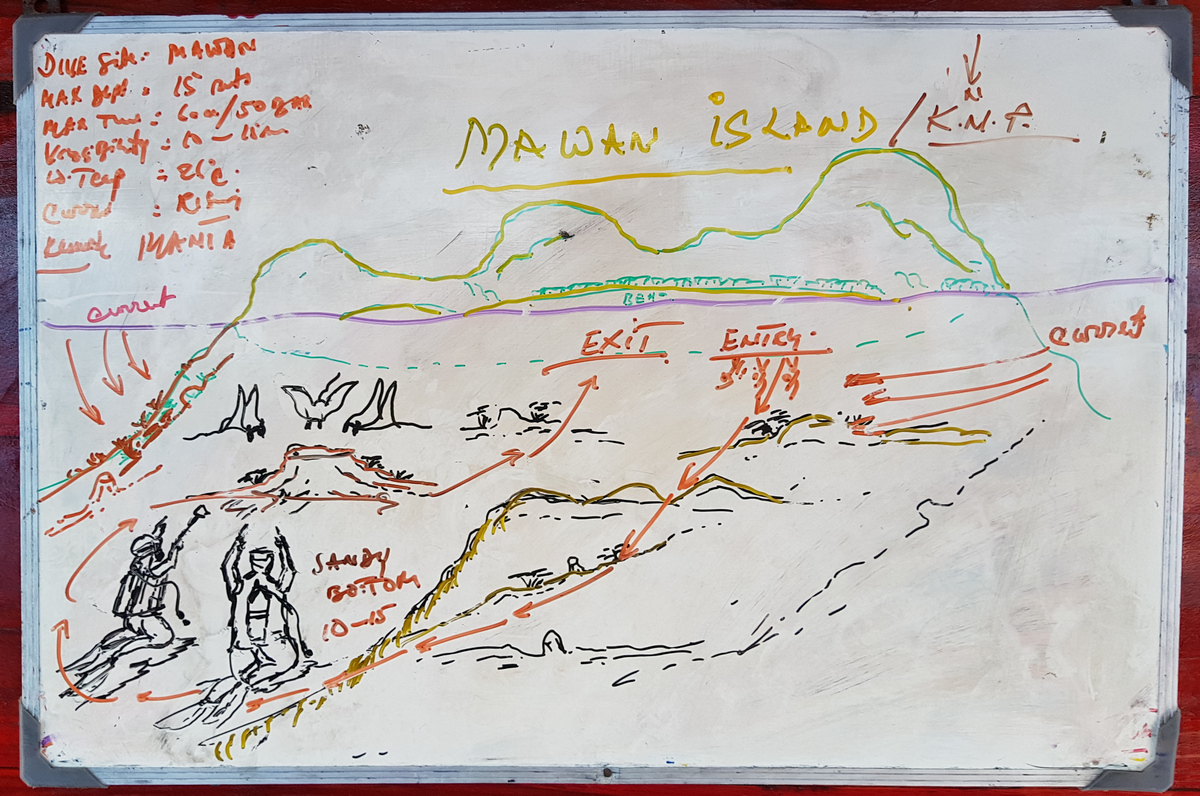 DIVE Site: MAWAN
MAX dept: 15 mts
MAX Time: 60m/50 BAR
Vissibility: 10-15m
W.Temp :
Current : Rising
Remark MANTA
MAWAN ISLAND / K.N.P.
N
current
BEH
EXIT
ENTRY.
Current
SANDY
BOTTOM
10-15